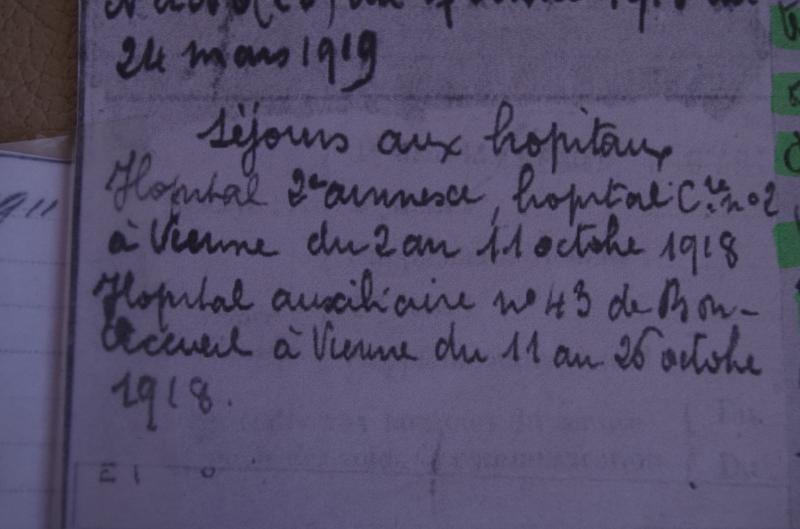 24 mars 1919
Séjours aux hopitaux
Hopital 2e annexe, hopital C.re no 2
à Vienne du 2 au 11 octobre 1918
Hopital auxiliaire no 43 de Bon-
Accueil à Vienne du 11 au 26 octobre
1918.